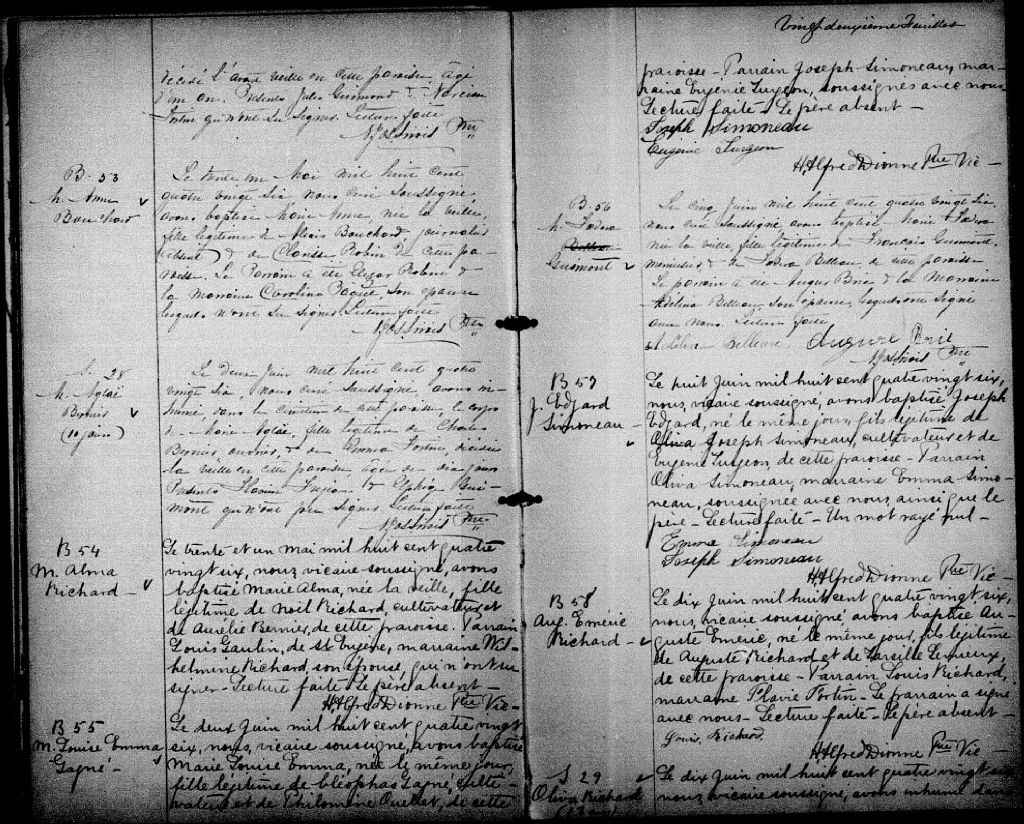 décédé l'avant veille en cette paroisse, âgé
d'un an. Présents Jules Guimond & Narcisse
Fortin qui n'ont su signer. Lecture faite
Ptre
B. 53
M. Anne
Bouchard
Le trente un Mai mil huit cent
quatre vingt six nous curé soussigné,
avons baptisé Marie Anne, née la veille,
fille légitime de Alexis Bouchard journalier
(absent) & de Clarisse Robin de cette pa-
roisse. Le Parrain a été Elzear Robin &
la marraine Carolina Paquet, son épouse
lesquels n'ont su signer. Lecture faite
Ptre
S. 28
M. Aglaé
Bernier
(10 jours)
Le deux Juin mil huit cent quatre
vingt six, nous curé soussigné avons in-
humé dans le cimetière de cette paroisse, le corps
de Marie Aglaé, fille légitime de Charles
Bernier, ouvrier, & de Emma Fortin, décédée
la veille en cette paroisse âgée de dix jours
Présents & Gui-
mont qui n'ont pu signer. Lecture faite
Ptre
B 54
M. Alma
Richard -
Le trente et un mai mil huit cent quatre
vingt six, nous, vicaire soussigné, avons
baptisé Marie Alma, née la veille, fille
légitime de Noël Richard, cultivateur et
de Aurélie Bernier, de cette paroisse. Parrain
Louis Gaulin, de St Eugène, marraine Wil-
helmine Richard, son épouse, qui n'ont su
signer - Lecture faite - Le père absent -
H. Alfred Dionne Ptre Vic -
B 55
M. Louise Emma
Gagné -
Le deux Juin mil huit cent quatre vingt
six, nous, vicaire soussigné, avons baptisé
Marie Louise Emma, née le même jour,
fille légitime de Cléophas Gagné, culti-
vateur et de Philomène Ouellet, de cette
Vingt deuxième Feuillet
paroisse - Parrain Joseph Simoneau, mar-
raine Eugénie Turgeon, soussignés avec nous
Lecture faite - Le père absent -
Joseph Simoneau
Eugénie Turgeon
H. Alfred Dionne Ptre Vic -
B. 56
M.
Guimont
Le cinq Juin mil huit cent quatre vingt six
nous curé soussigné avons baptisé Marie
née la veille, fille légitime de François Guimont,
menuisier & de Belleau de cette paroisse
Le parrain a été & la Marraine
Adelina Belleau, son épouse, lesquels ont signé
avec nous. Lecture faite
Adelina Belleau
Ptre
B 57
J. Edjard
Simoneau -
Le huit Juin mil huit cent quatre vingt six,
nous, vicaire soussigné, avons baptisé Joseph
Edjard, né le même jour, fils légitime de
Oliva Joseph Simoneau, cultivateur et de
Eugénie Turgeon, de cette paroisse - Parrain
Oliva Simoneau, marraine Emma Simo-
neau, soussignée avec nous, ainsi que le
père - Lecture faite - Un mot rayé nul -
Emma Simoneau
Joseph Simoneau
H. Alfred Dionne Ptre Vic -
B 58
Aug. Emeric
Richard -
Le dix Juin mil huit cent quatre vingt six,
nous, vicaire soussigné, avons baptisé Au-
guste Emeric, né le même jour, fils légitime
de Auguste Richard et de Tarsille Lemieux,
de cette paroisse - Parrain Louis Richard,
marraine Flavie Fortin - Le parrain a signé
avec nous - Lecture faite - Le père absent -
Louis Richard
H. Alfred Dionne Ptre Vic -
S 29
Oliva Richard
Le dix Juin mil huit cent quatre vingt six
nous, vicaire soussigné, avons inhumé dans